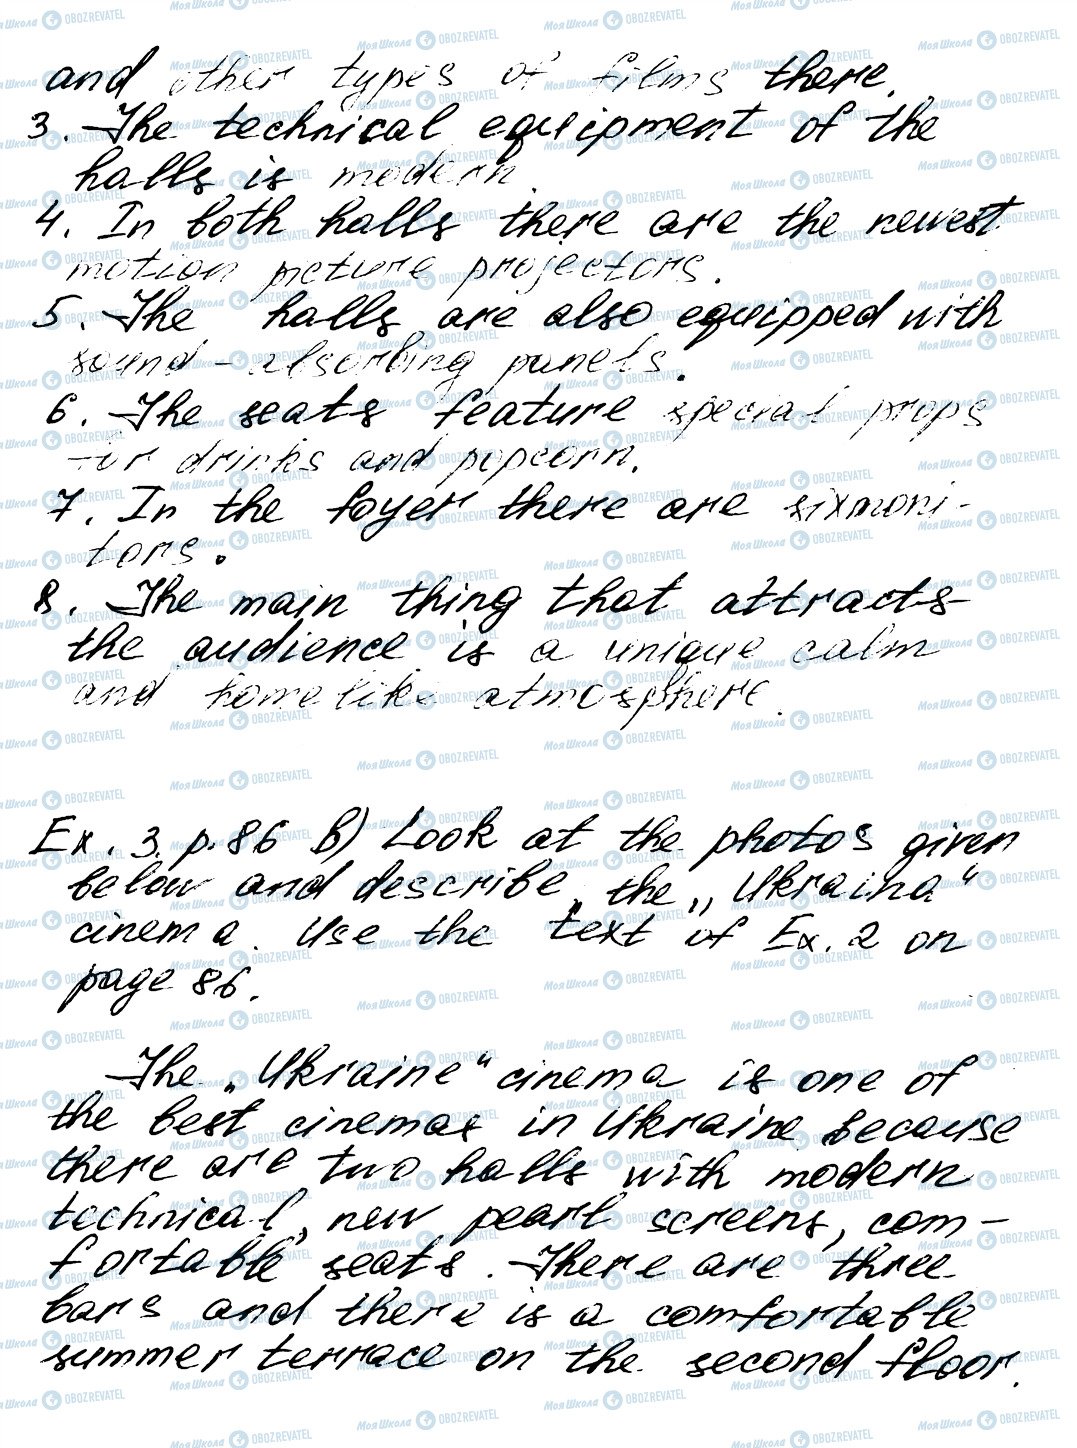 and other types of films there.
3. The technical equipment of the
halls is modern.
4. In both halls there are the newest
motion picture projectors.
5. The halls are also equipped with
sound-absorbing panels.
6. The seats feature special props
for drinks and popcorn.
7. In the foyer there are six moni-
tors.
8. The main thing that attracts
the audience is a unique calm
and homelike atmosphere.
Ex. 3 p. 86 B) Look at the photos given
below and describe the „Ukraina“
cinema. Use the text of Ex. 2 on
page 86.
The „Ukraine“ cinema is one of
the best cinemas in Ukraine because
there are two halls with modern
technical, new pearl screens, com-
fortable seats. There are three
bars and there is a comfortable
summer terrace on the second floor.